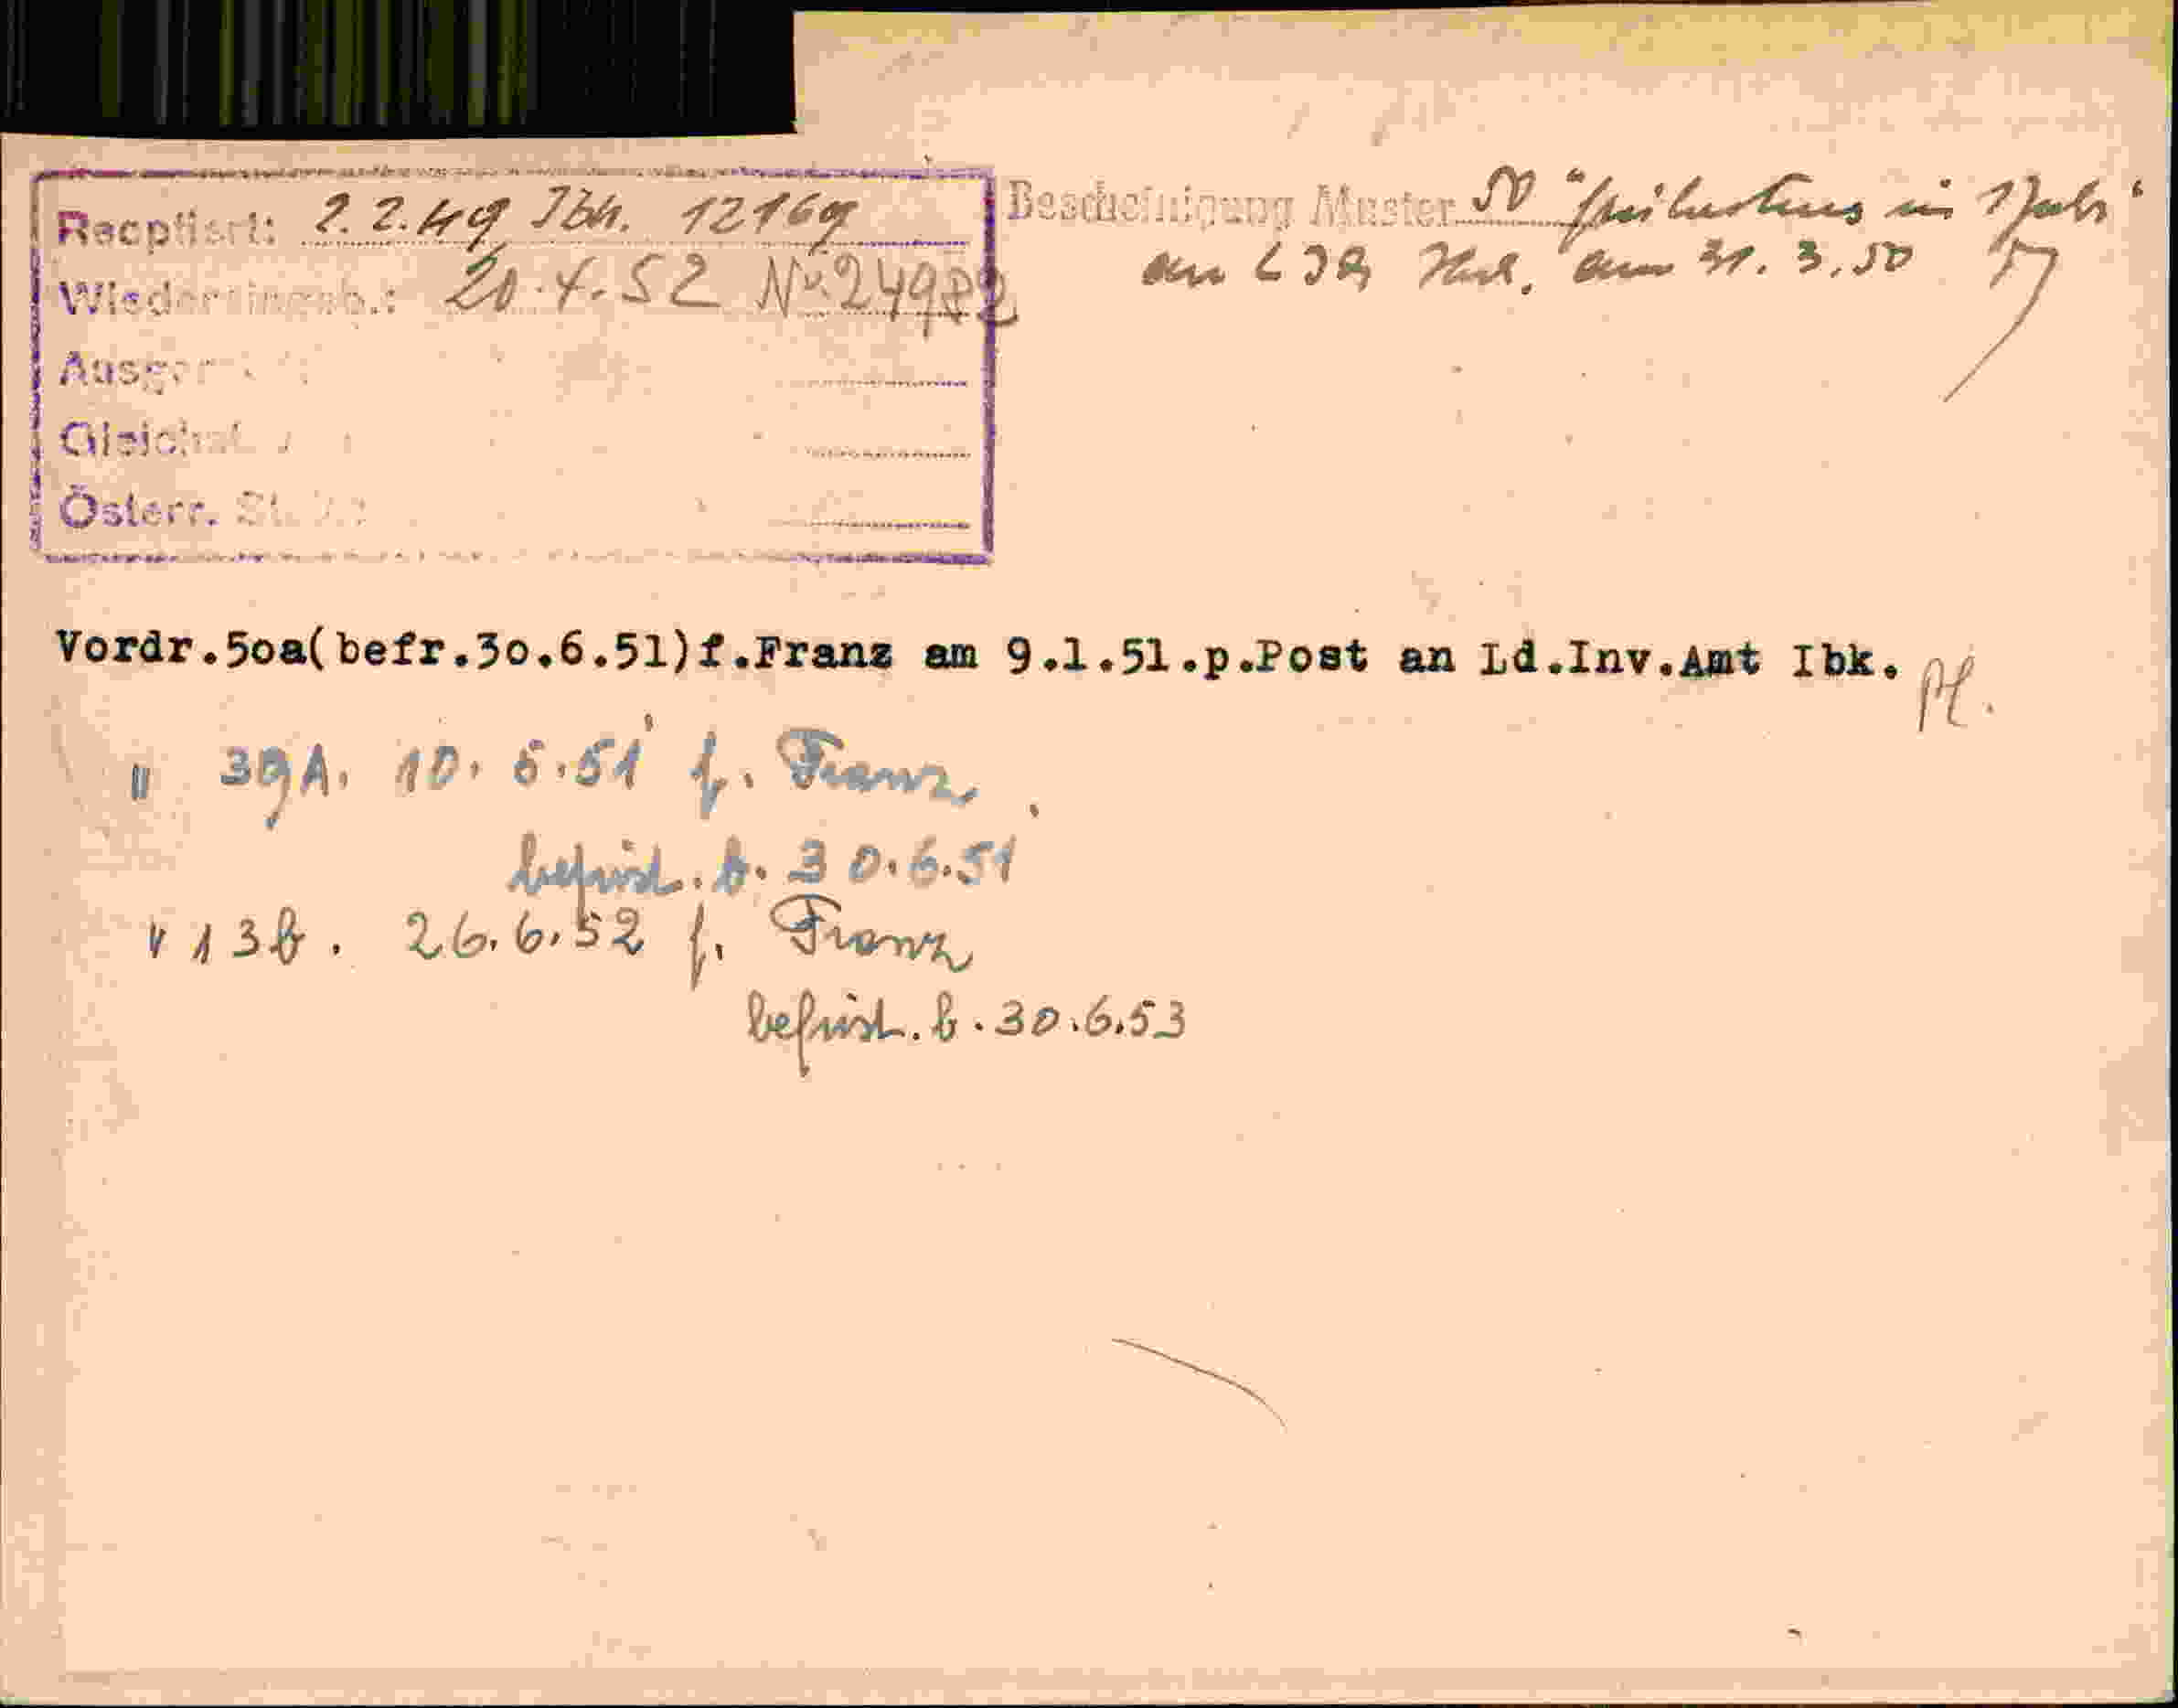 Reoptiert: 2.2.49 Ibk. 12169
Wiedereingeb.: 20.4.52 No 24982
Ausger
Gleichst.
Österr. St.
Bescheinigung Muster 50 in 1 Jahr"
an am 31.3.50
Vordr.5oa(befr.3o.6.51)f.Franz am 9.1.51.p.Post an Ld.Inv.Amt Ibk. Pf.
" 39A. 10. 5.51 f. Franz
befrist. b. 30.6.51
" 13b. 26.6.52 f. Franz
befrist. b. 30.6.53